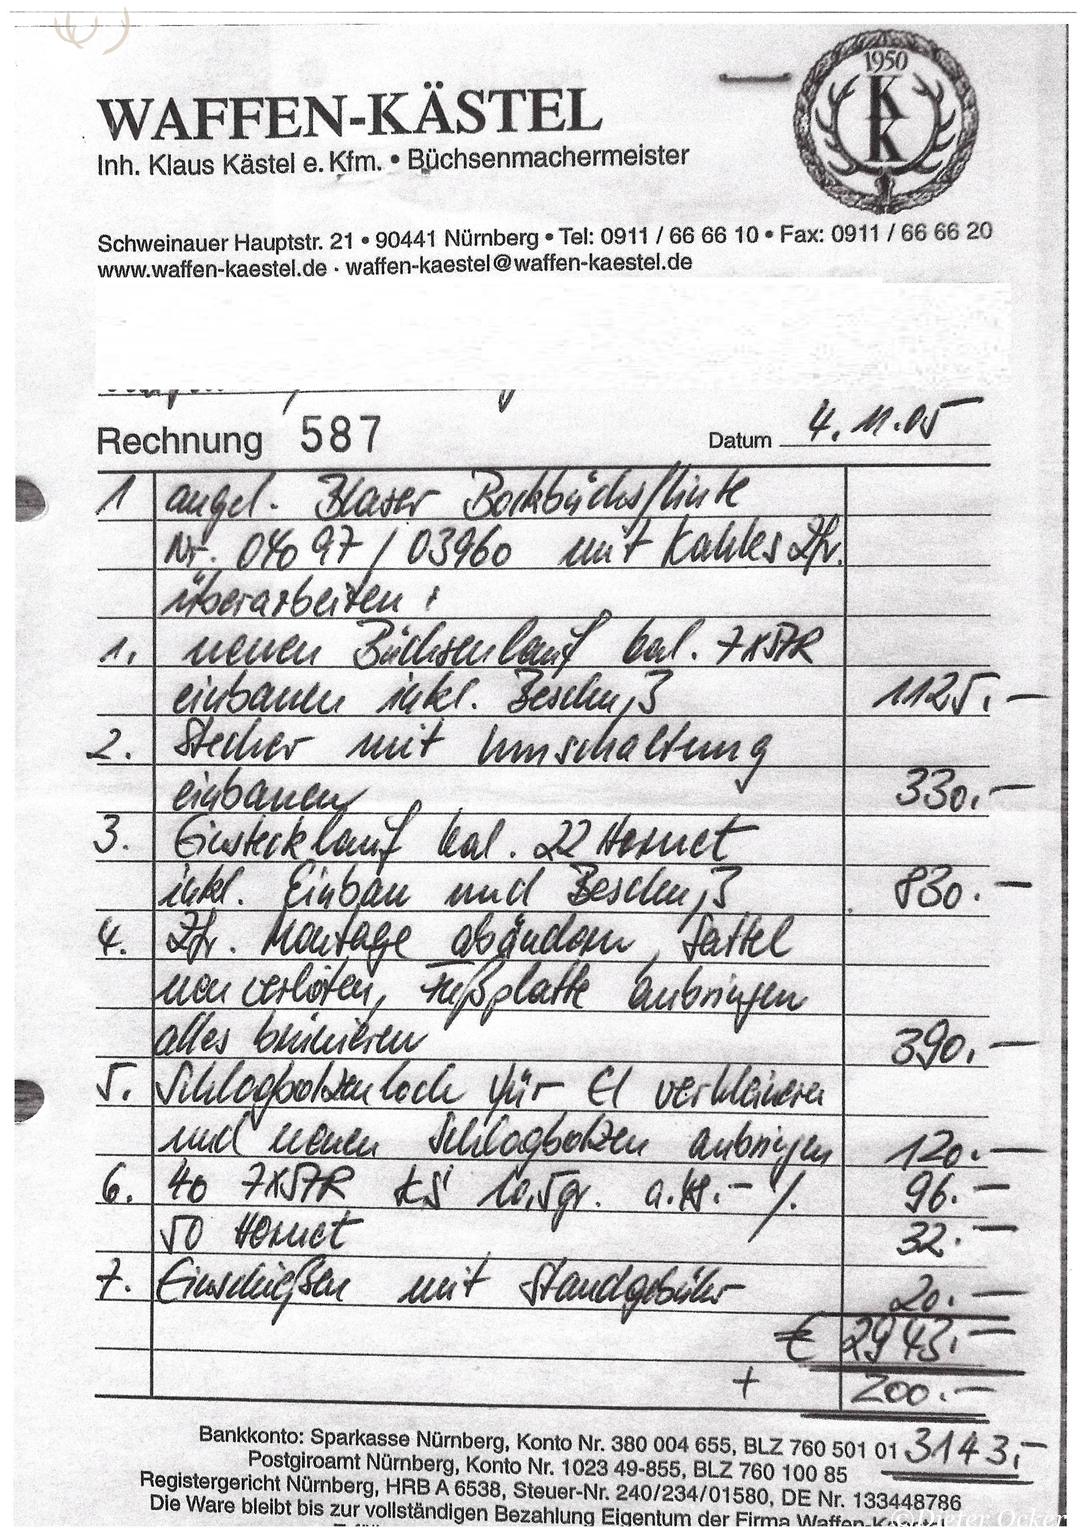 1950
K
K
WAFFEN-KÄSTEL
Inh. Klaus Kästel e. Kfm. • Büchsenmachermeister
Schweinauer Hauptstr. 21 • 90441 Nürnberg • Tel: 0911 / 66 66 10 • Fax: 0911 / 66 66 20
www.waffen-kaestel.de · waffen-kaestel@waffen-kaestel.de
Rechnung 587 Datum 4.11.05
1 angel. Blaser Bockbüchsflinte
Nr. 04097/03960 mit Kahles Zfr.
überarbeiten:
1. neuen Büchsenlauf kal. 7x57R
einbauen inkl. Beschuß 1125.-
2. Stecher mit Umschaltung
einbauen 330.-
3. Einstecklauf kal. 22 Hornet
inkl. Einbau und Beschuß 830.-
4. Zfr. Montage abändern, Sattel
neu verlöten, Fußplatte anbringen
alles brünieren 390.-
5. Schlagbolzenloch für El verkleinern
und neuen Schlagbolzen anbringen 120.-
6. 40 7x57R KS 10,5gr. a.48.- /. 96.-
50 Hornet 32.-
7. Einschießen mit Standgebühr 20.-
€ 2943.-
+ 200.-
3143.-
Bankkonto: Sparkasse Nürnberg, Konto Nr. 380 004 655, BLZ 760 501 01
Postgiroamt Nürnberg, Konto Nr. 1023 49-855, BLZ 760 100 85
Registergericht Nürnberg, HRB A 6538, Steuer-Nr. 240/234/01580, DE Nr. 133448786
Die Ware bleibt bis zur vollständigen Bezahlung Eigentum der Firma Waffen-Kästel
©Dieter Ocker